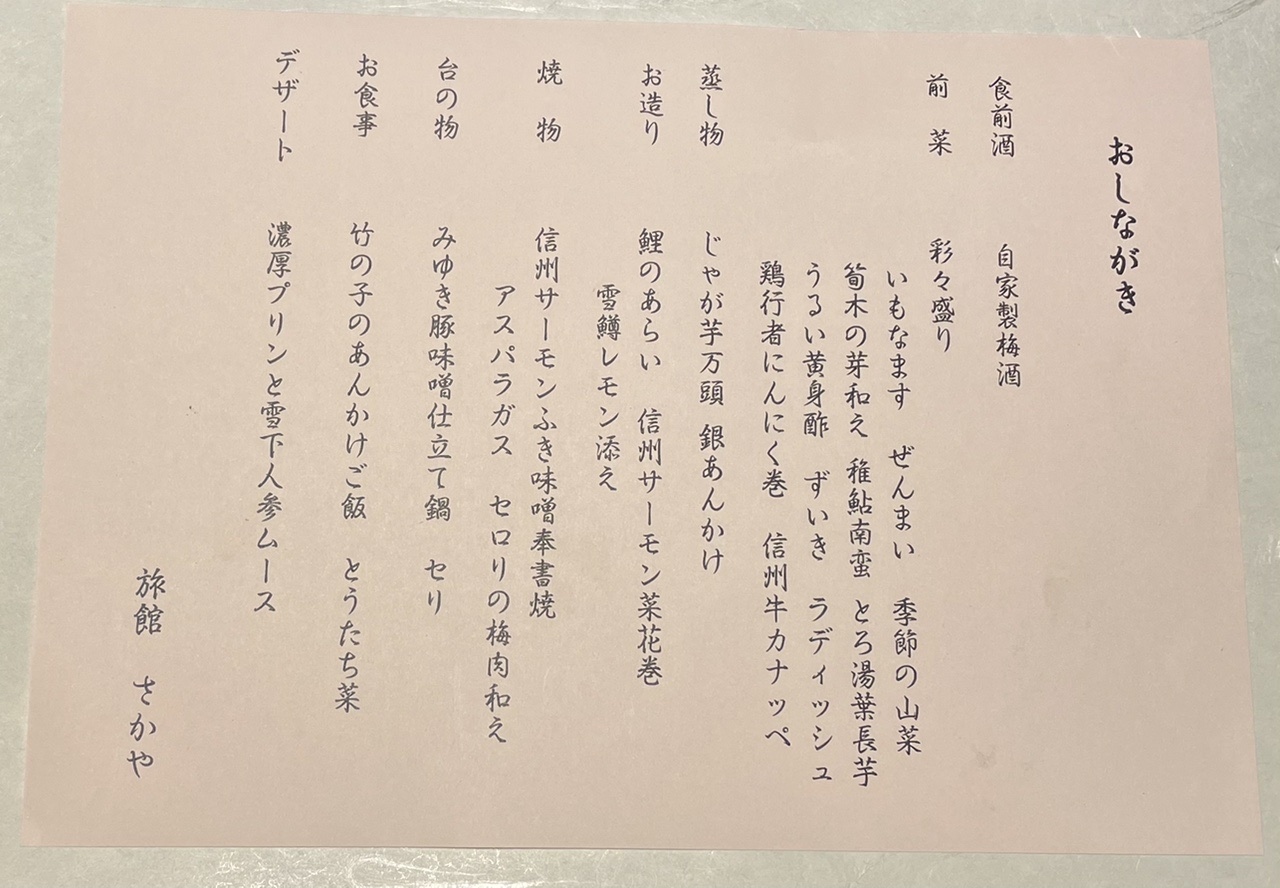 おしながき
食前酒　自家製梅酒
前　菜　彩々盛り
いもなます　ぜんまい　季節の山菜
筍木の芽和え　稚鮎南蛮　とろ湯葉長芋
うるい黄身酢　ずいき　ラディッシュ
鶏行者にんにく巻　信州牛カナッペ
蒸し物　じゃが芋万頭　銀あんかけ
お造り　鯉のあらい　信州サーモン菜花巻
雪鱒レモン添え
焼　物　信州サーモンふき味噌奉書焼
アスパラガス　セロリの梅肉和え
台の物　みゆき豚味噌仕立て鍋　セリ
お食事　竹の子のあんかけご飯　とうたち菜
デザート　濃厚プリンと雪下人参ムース
旅館　さかや